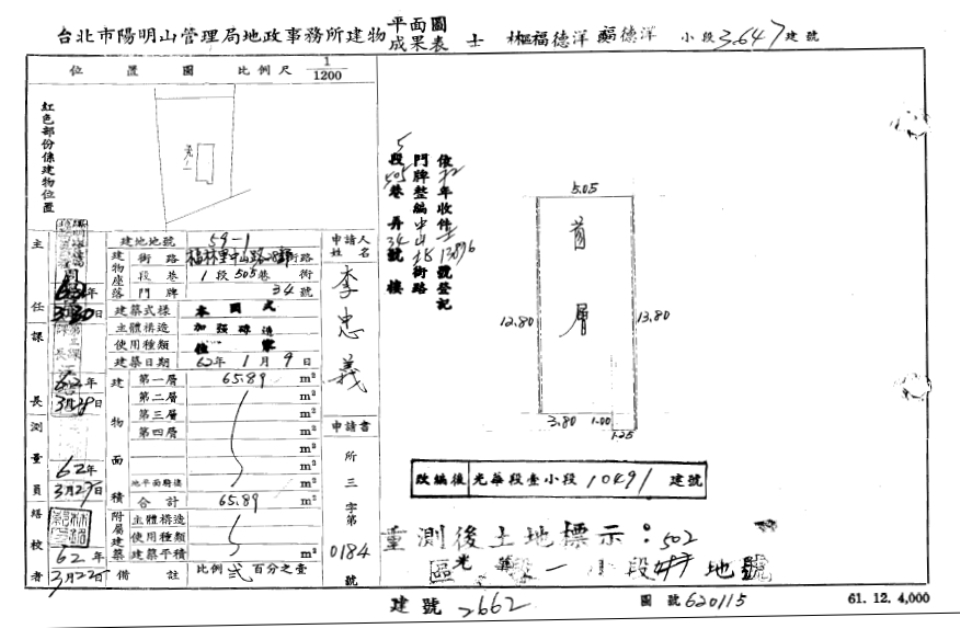 台北市陽明山管理局地政事務所建物平面圖成果表 士林區福德洋段福德洋小段3.647建號
位置圖 比例尺 1/1200
紅色部份係建物位置
59-1
主任
62年
3月30日
課長
62年
3月29日
測量員
62年
3月27日
繕校者
62年
3月22日
建地地號 59-1
建物座落
街路 福林里中山路北 街路
段巷 1段505巷 街
門牌 34號
建築式樣 本國式
主體構造 加強磚造
使用種類 住家
建築日期 62年1月9日
建物面積
第一層 65.89 m²
第二層 m²
第三層 m²
第四層 m²
m²
m²
地平面騎樓 m²
合計 65.89 m²
附屬建築
主體構造
使用種類
建築平積 m²
備註 比例貳百分之壹
申請人姓名
李忠義
申請書
所三字第
0184
號
依62年收件士13896號登記
門牌整編中山北街路
5段505巷弄34號樓
5.05
首層
12.80
13.80
3.80 1.00
1.25
改編後 光華段壹小段10491建號
重測後土地標示：502
區光華段一小段 地號
建號 2662
圖號620115
61. 12. 4,000